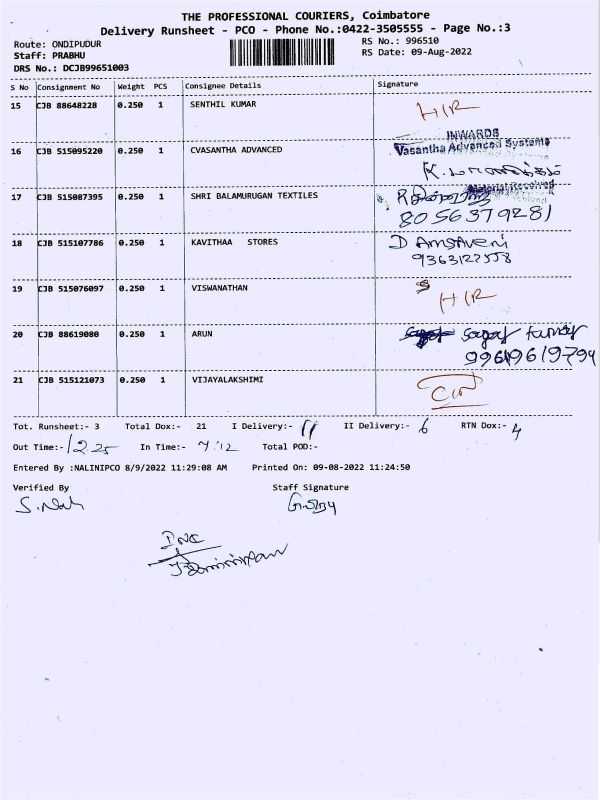 THE PROFESSIONAL COURIERS, Coimbatore
Delivery Runsheet - PCO - Phone No.:0422-3505555 - Page No.:3
Route: ONDIPUDUR RS No.: 996510
Staff: PRABHU RS Date: 09-Aug-2022
DRS No.: DCJB99651003
S No Consignment No Weight PCS Consignee Details Signature
15 CJB 88648228 0.250 1 SENTHIL KUMAR H/R
INWARDS
16 CJB 515095220 0.250 1 CVASANTHA ADVANCED Vasantha Advanced Systems
Material Received
17 CJB 515087395 0.250 1 SHRI BALAMURUGAN TEXTILES
8056379281
18 CJB 515107786 0.250 1 KAVITHAA STORES D Amsaveni
9363127558
19 CJB 515076097 0.250 1 VISWANATHAN H/R
20 CJB 88619080 0.250 1 ARUN
21 CJB 515121073 0.250 1 VIJAYALAKSHIMI
Tot. Runsheet:- 3 Total Dox:- 21 I Delivery:- 11 II Delivery:- 6 RTN Dox:- 4
Out Time:- 12.25 In Time:- 7.12 Total POD:-
Entered By :NALINIPCO 8/9/2022 11:29:08 AM Printed On: 09-08-2022 11:24:50
Verified By Staff Signature